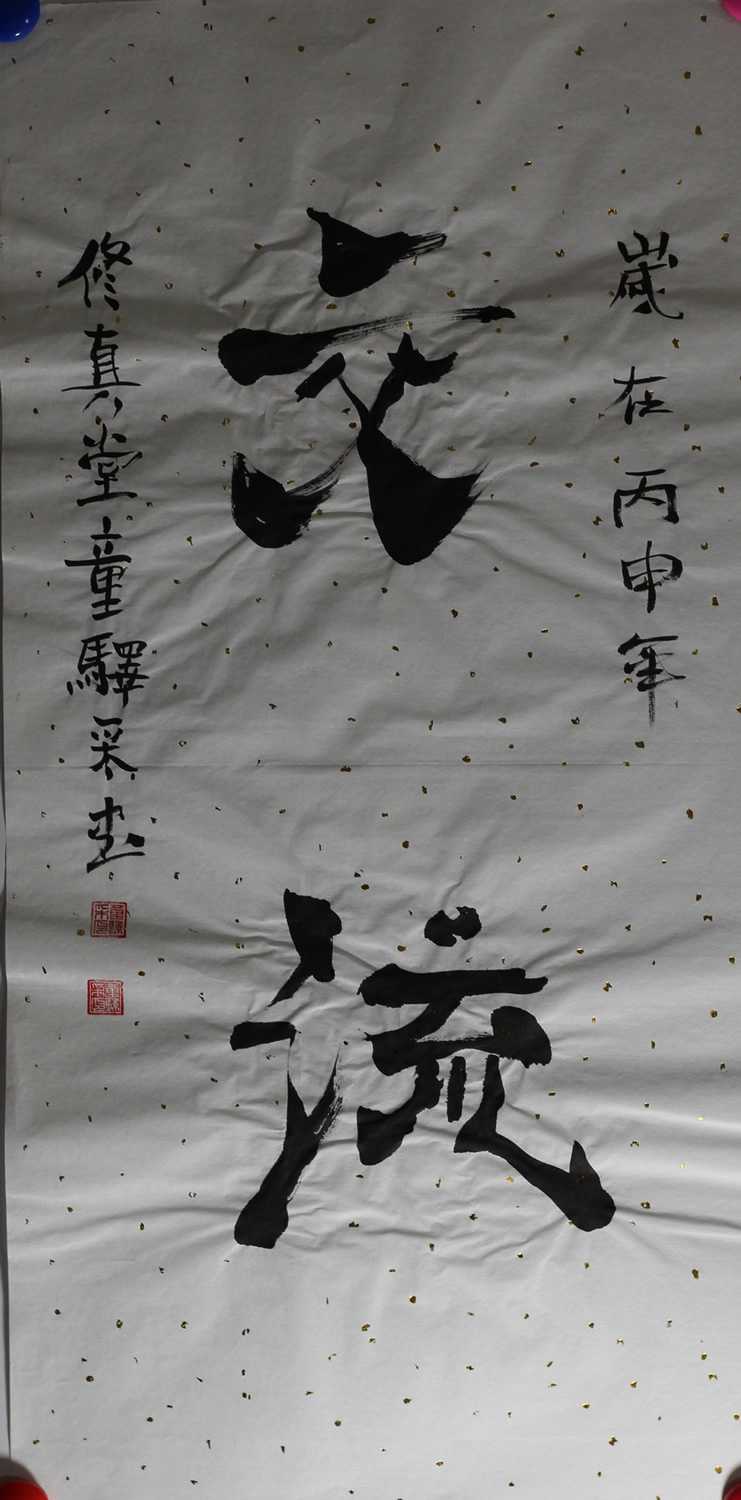 歲在丙申年
交流
修真堂童驛采書